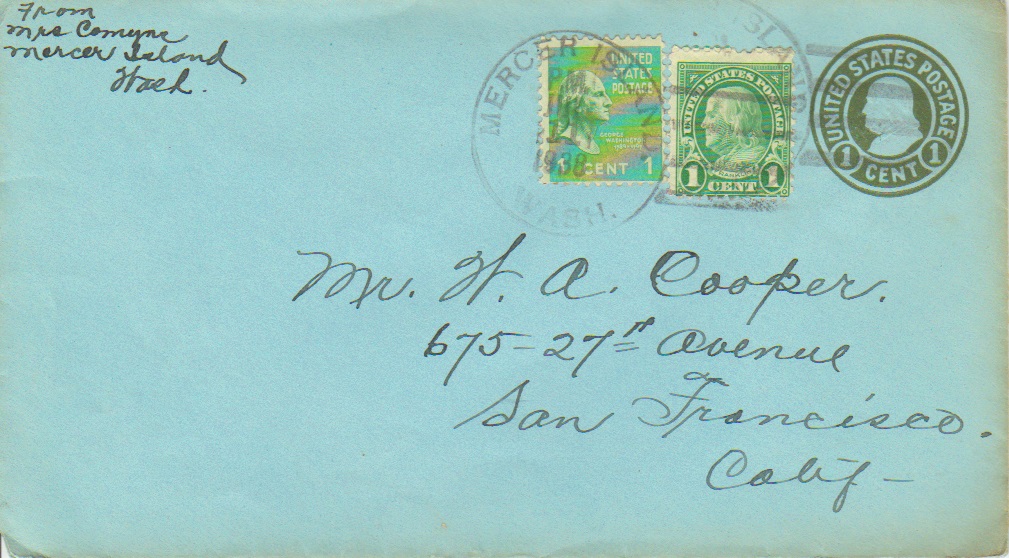 From
Mrs Comyne
Mercer Island
Wash.
MERCER IS
WASH.
1938
ISLAND
UNITED
STATES
POSTAGE
GEORGE
WASHINGTON
1 CENT 1
UNITED STATES POSTAGE
FRANKLIN
1 CENT 1
UNITED STATES POSTAGE
1 CENT 1
Mr. W. A. Cooper.
675-27th Avenue
San Francisco.
Calif-